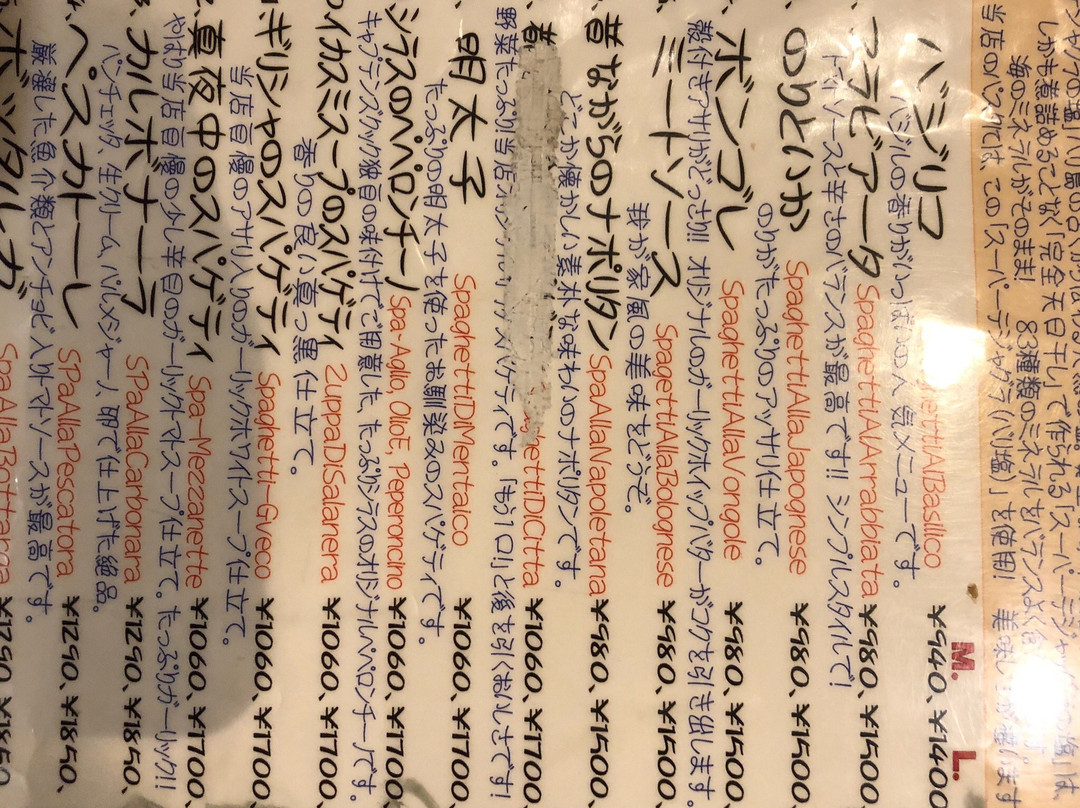 しかも煮詰めることなく「完全天日干し」で作られる「スーパーデ
海のミネラルがそのまま! 83種類のミネラルをバランスよく
当店のパスタには、この「スーパーデシャップ(バリ塩)」を使用! 美味し
M. L.
バジリコ AlBasilico ¥940、¥1400
バジルの香りがいっぱいの人気メニューです。
ラビアータ SpaghettiAlArrabbiata ¥980、¥1500
トマトソースと辛さのバランスが最高です!! シンプルスタイルで!
のりといか SpaghettiAllaJapognese ¥980、¥1500
のりがたっぷりのアッサリ仕立て。
ボンゴレ SpaghettiAllaVongole ¥980、¥1500
殻付きアサリがどっさり!! オリジナルのガーリックホイップバターがコクを引き出します。
ミートソース SpagettiAllaBolognese ¥980、¥1500
我が家風の美味をどうぞ。
昔ながらのナポリタン SpaAllaNapletana ¥980、¥1500
どこか懐かしい素朴な味わいのナポリタンです。
ghettiDiCitta ¥1060、¥1700
野菜たっぷり当店 スパゲティです。「もう1口!」と後を引くおいしさです!
明太子 SpaghettiDiMentaico ¥1060、¥1700
たっぷりの明太子を使ったお馴染みのスパゲティです。
シラスのペペロンチーノ Spa-Aglio, OlioE, Peperoncino ¥1060、¥1700
キャプテンズクック独自の味付けでご用意した、たっぷりシラスのオリジナルペペロンチーノです。
イカスミスープのスパゲティ ZuppaDiSalanera ¥1100、
香りの良い真っ黒仕立て。
ギリシャのスパゲティ Spaghetti-Greco ¥1060、¥1700
当店自慢のアサリ入りのガーリックホワイトスープ仕立て。
真夜中のスパゲティ Spa-Mezzanotte ¥1060、¥1700
やはり当店自慢の少し辛目のガーリックトマトスープ仕立て。たっぷりガーリック!!
カルボナーラ SPaAllaCarbonara ¥1290、¥1850
パンチェッタ、生クリーム、パルメジャーノ、卵で仕上げた絶品。
ペスカトーレ SPaAllaPescatora ¥1290、¥1850、
厳選した魚介類とアンチョビ入りトマトソースが最高です。
ボッタルガ SpaAllaBottarga ¥1290、¥1850